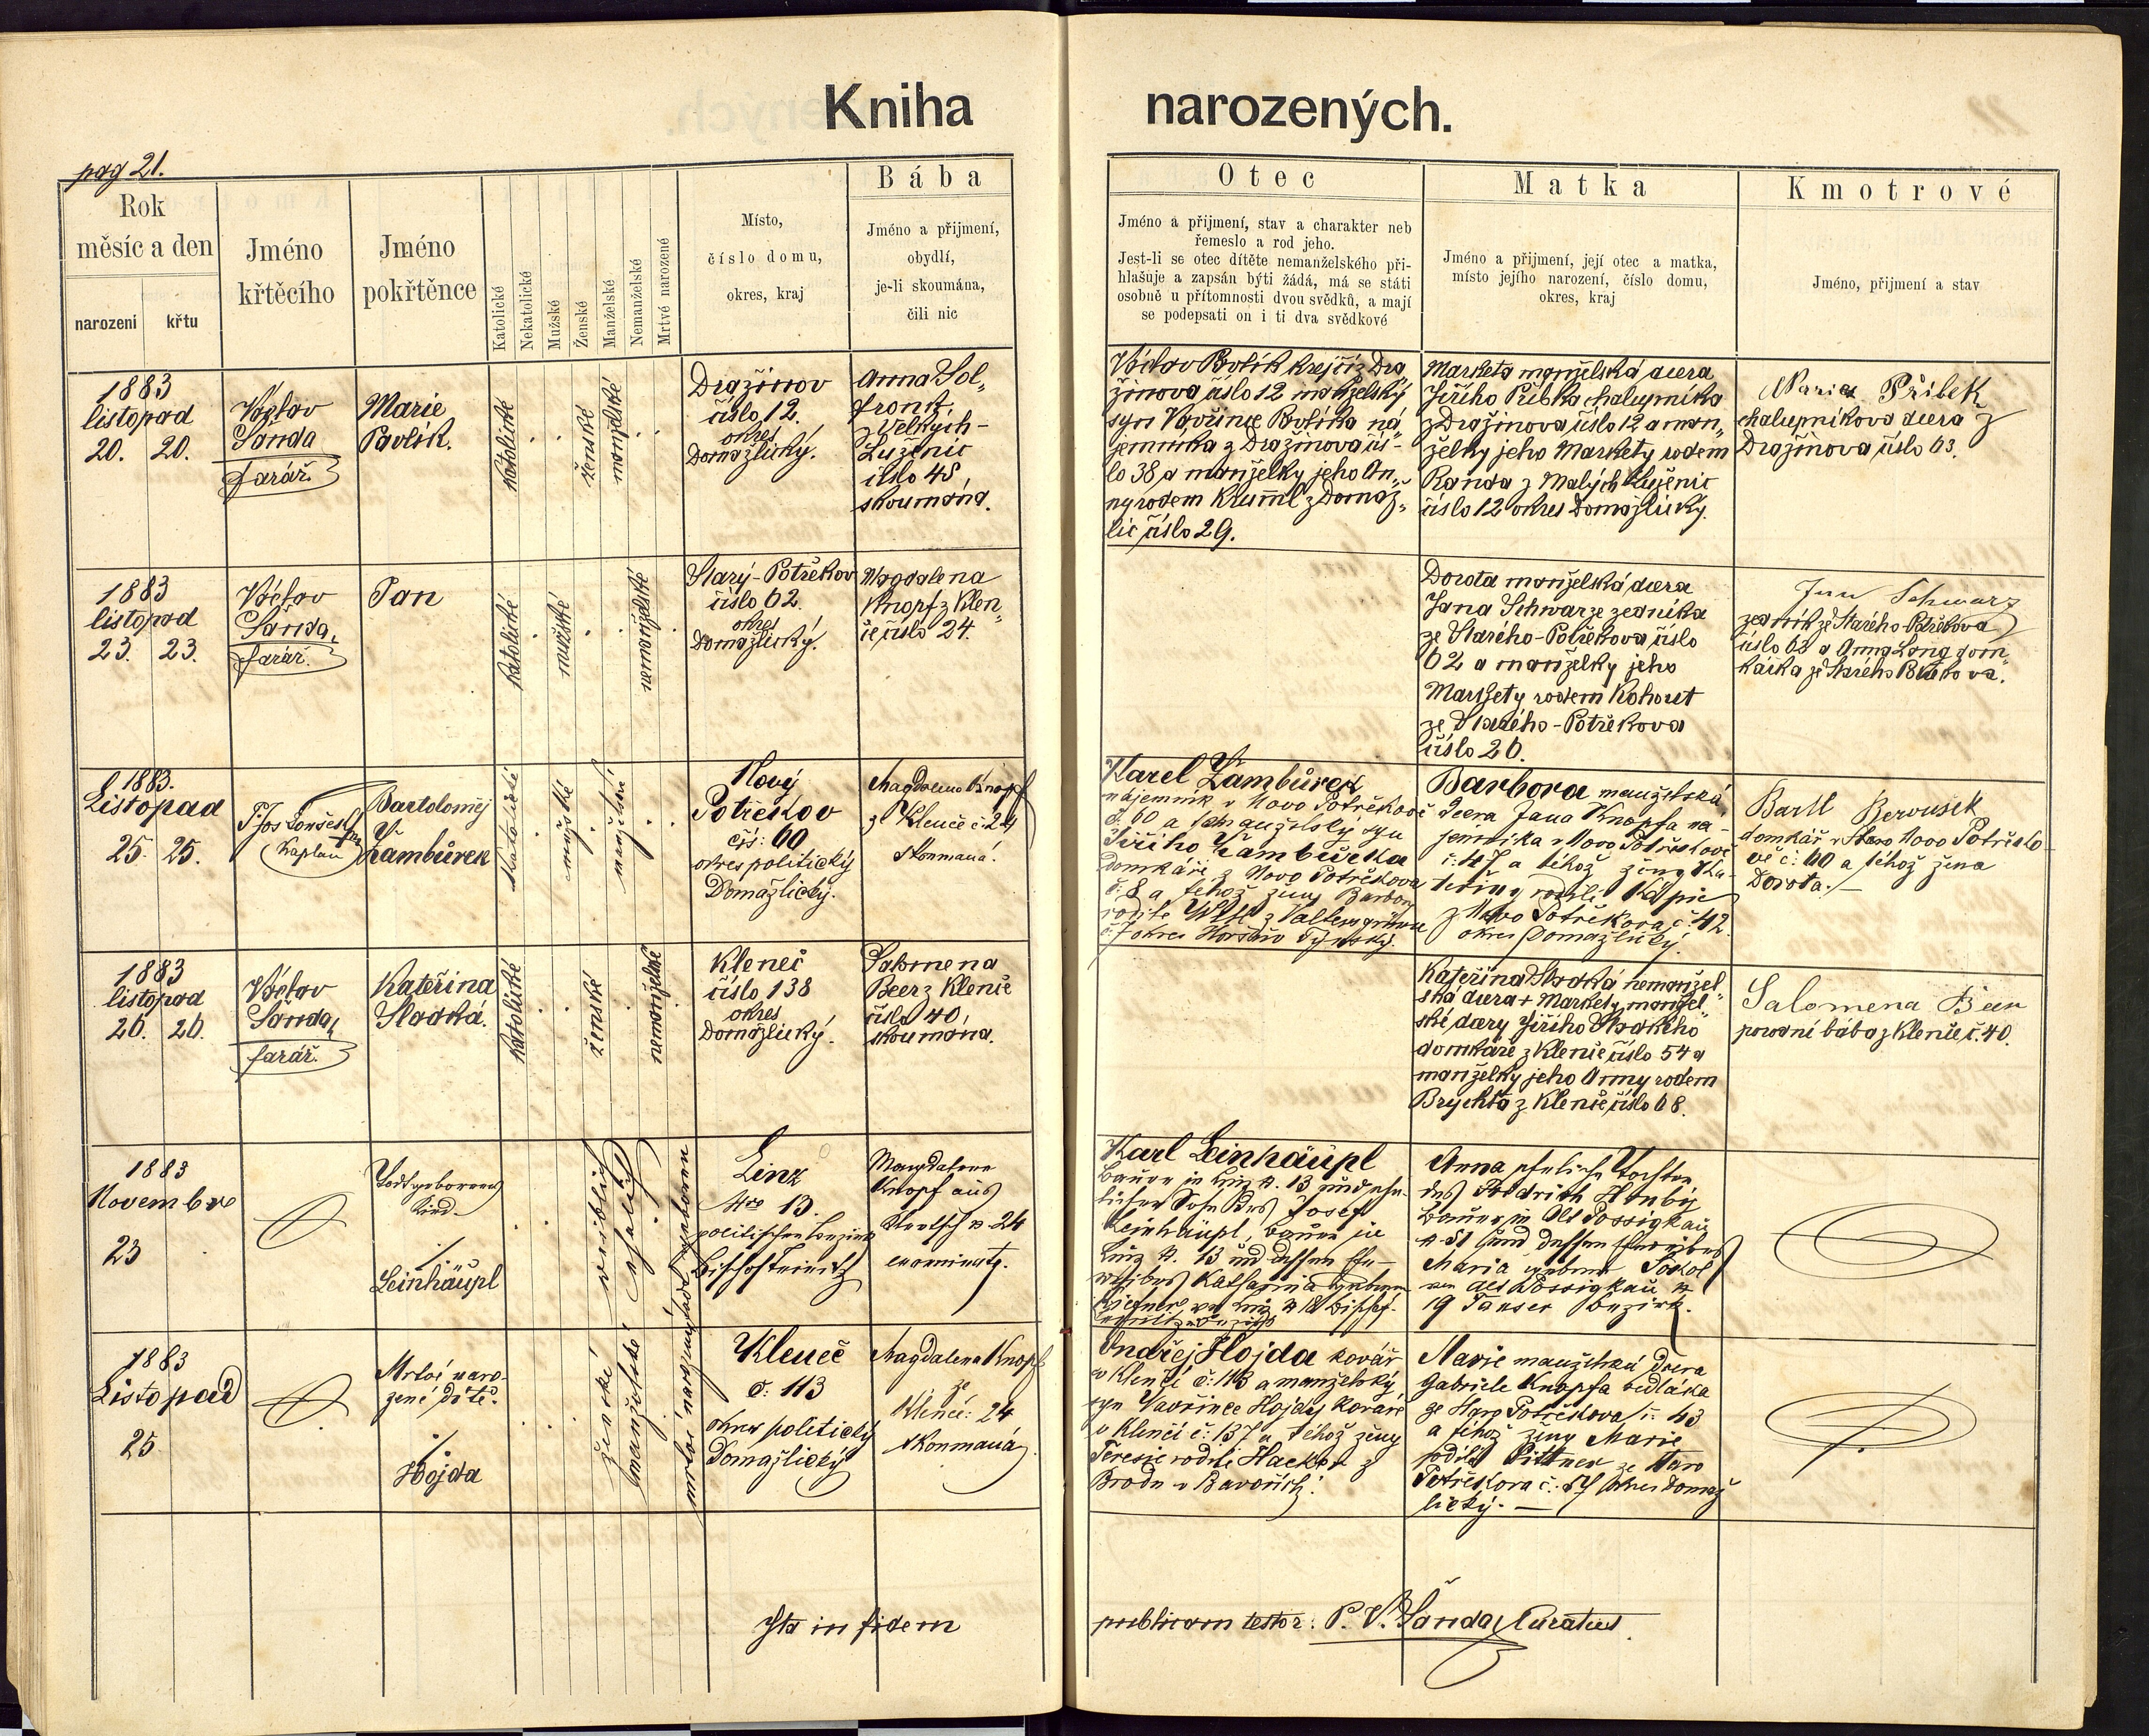 Kniha narozených.
pag 21.
Rok
měsíc a den
narození
křtu
Jméno
křtěcího
Jméno
pokřtěnce
Katolické
Nekatolické
Mužské
Ženské
Manželské
Nemanželské
Mrtvé narozené
Místo,
číslo domu,
okres, kraj
Bába
Jméno a přijmení,
obydlí,
je-li skoumána,
čili nic
Otec
Jméno a přijmení, stav a charakter neb
řemeslo a rod jeho.
Jest-li se otec dítěte nemanželského při-
hlašuje a zapsán býti žádá, má se státi
osobně u přítomnosti dvou svědků, a mají
se podepsati on i ti dva svědkové
Matka
Jméno a přijmení, její otec a matka,
místo jejího narození, číslo domu,
okres, kraj
Kmotrové
Jméno, přijmení a stav
1883
listopad
20. 20.
Václav
Šanda
farář.
Marie
Pavlík.
katolické
ženské
manželské
Dražinov
číslo 12.
okres
Domažlický.
Anna Sol„
fronk
z Velkých-
Luženic
číslo 48
skoumána.
Václav Pavlík krejčí z Dra
žinova číslo 12 manželský
syn Vavřince Pavlíka ná
jemníka z Dražinova čís-
lo 38 a manželky jeho An„
ny rodem Kruml z Domaž„
lic číslo 29.
Markéta manželská dcera
Jiřího Přibka chalupníka
z Dražinova číslo 12 a man„
želky jeho Markéty rodem
Randa z Malých Luženic
číslo 12 okres Domažlický.
Marie Přibek
chalupníkova dcera z
Dražinova číslo 63.
1883
listopad
23. 23.
Václav
Šanda,
farář.
Jan
katolické
mužské
nemanželské
Starý-Potřekov
číslo 62.
okres
Domažlický.
Magdalena
Knopf z Klen„
če číslo 24.
Dorota manželská dcera
Jana Schwarze zedníka
ze Starého-Potřekova číslo
62 a manželky jeho
Markéty rodem Kohout
ze Starého-Potřekova
číslo 26.
Jan Schwarz
zedník ze Starého-Potřekova
číslo 62 a Anna Lang dom„
kářka ze Starého
1883.
Listopad
25. 25.
P. Jos
Kaplan
Bartoloměj
Žambůrek
katolické
mužské
manželské
Nový
Potřekov
čís: 60
okres politický
Domažlický.
Magdalena Knopf
z Klenče č. 24
skoumaná.
Karel Žambůrek
nájemník v Novo Potřekově
č. 60 a manželský syn
Jiřího Žambůrka
domkáře z Novo Potřekova
č. 8 a téhož ženy Barbory
rozite
č. 7 okres Horšův Týnský.
Barbora manželská
dcera Jana Knopfa ná-
jemníka v Novo Potřekově
č. 47 a téhož ženy Ka-
teřiny rodilé
z Novo Potřekova č: 42.
okres Domažlický.
Bartl
domkář v Novo Potřeko-
vě č: 60 a téhož žena
Dorota.
1883
listopad
26. 26.
Václav
Šanda,
farář.
Kateřina
Sladká.
katolické
ženské
nemanželské
Kleneč
číslo 138
okres
Domažlický.
Salomena
Beer z Klenče
číslo 40,
skoumána.
Kateřina Sladká nemanžel„
ská dcera + Markéty manžel„
ské dcery Jiřího Sladkého
domkáře z Klenče číslo 54 a
manželky jeho Anny rodem
Brychta z Klenče číslo 68.
Salomena Beer
porodní bába z Klenče č. 40.
1883
November
23
Todtgeborenes
Kind.
Leinhäupl
weiblich
ehelich
todt geboren
Linz
Nro 13.
politischen Bezirk
Bischofteinitz
Magdalena
Knopf aus
Klentsch No 24
examinata.
Karl Leinhäupl
Bauer in Linz N. 13 und ehe-
licher Sohn des Josef
Leinhäupl, Bauer in
Linz N. 13 und dessen Ehe-
weibes Katharina geborene
Linz N 18 Bischof-
Anna eheliche Tochter
des
Bauer in Alt Possigkau
N 31 und dessen Eheweibes
Maria geborne Sokol
von Alt Possigkau N
19 Tauser Bezirk.
1883
Listopad
25
Mrtvě naro-
zené dítě.
Hojda
ženské
manželské
mrtvé narozené
Kleneč
č: 113
okres politický
Domažlický
Magdalena Knopf
ze
Klenče: 24
skoumaná
Ondřej Hojda kovář
v Klenčí č: 113 a manželský
syn Vavřince Hojdy kováře
v Klenčí č: 137 a téhož ženy
Teresie rodilé Hacker z
Brodu v Bavořích.
Marie manželská dcera
Gabriele Knopfa sedláka
ze Staro Potřekova č. 43
a téhož ženy Marie
rodilé Bittner ze Staro
Potřekova č. 57 okres Domaž
lický. —
Ita in fidem publicam testor: P. V. Šanda, Curatus.